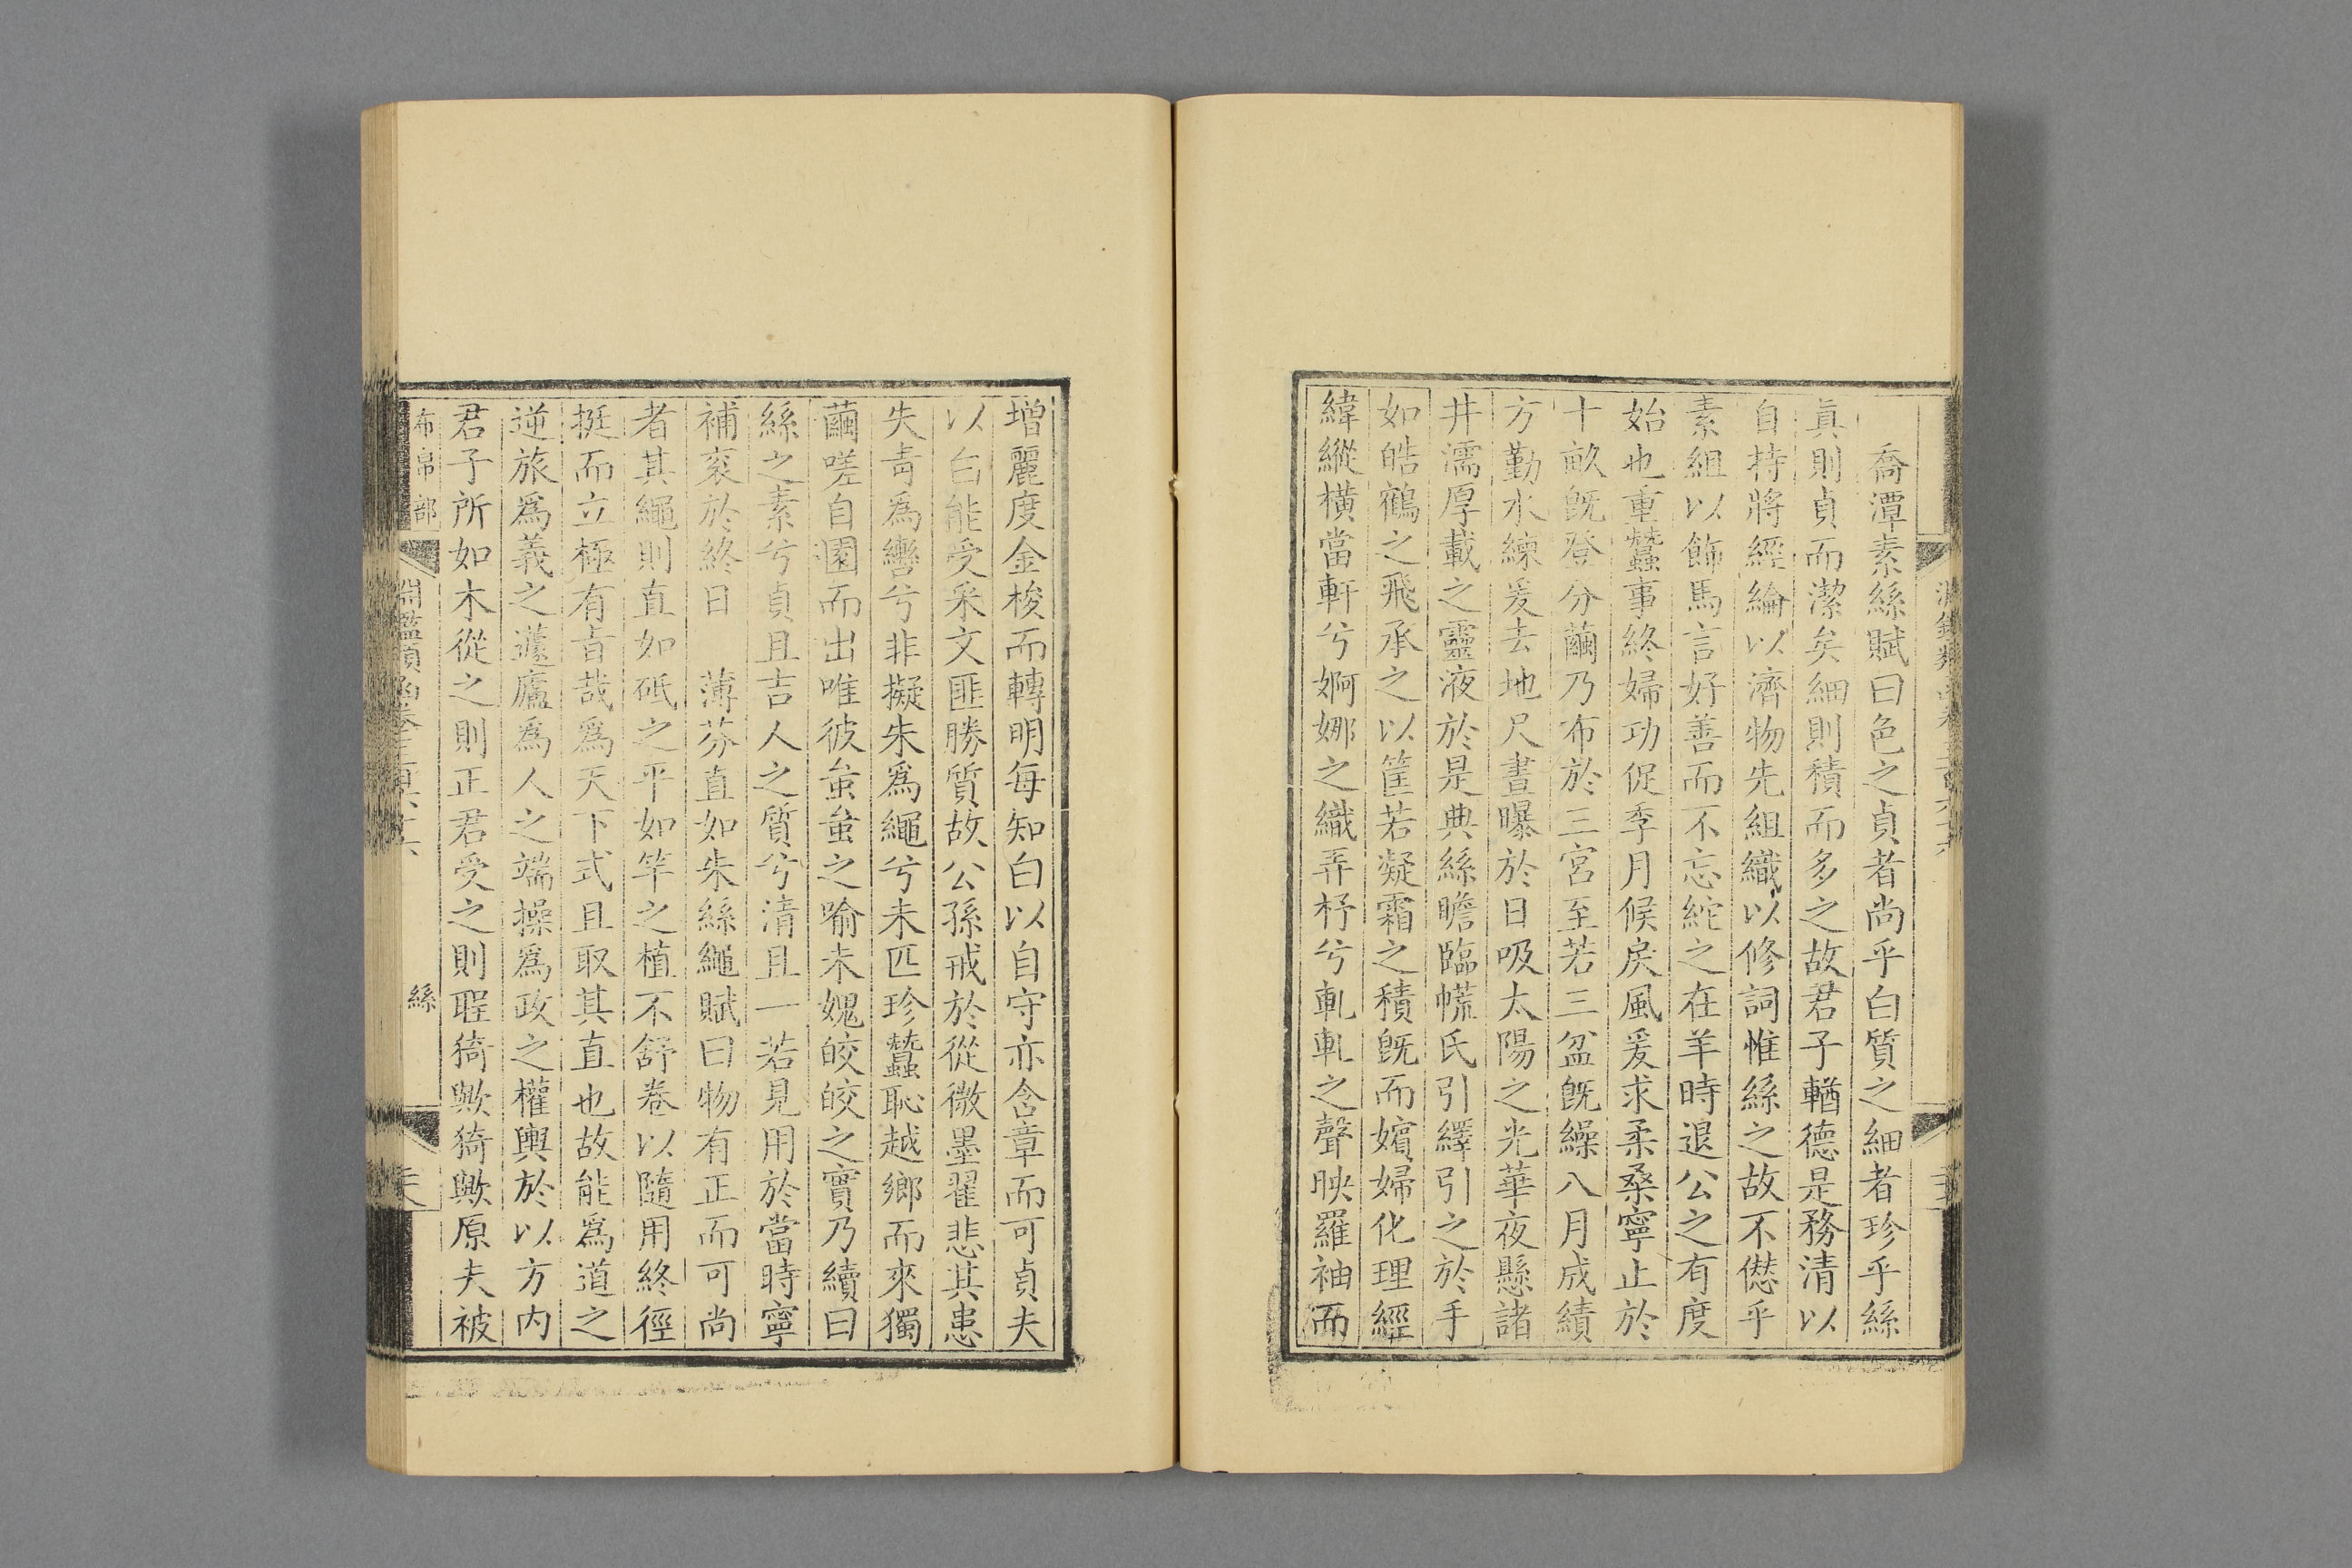 喬潭素絲賦曰色之貞者尚乎白質之細者珍乎絲
眞則貞而潔矣細則積而多之故君子輶德是務清以
自持將經綸以濟物先組織以修詞惟絲之故不愆乎
素組以飾馬言好善而不忘紽之在羊時退公之有度
始也重蠶事終婦功促季月候戾風爰求柔桑寧止於
十畝旣登分繭乃布於三宮至若三盆旣繰八月成績
方勤水練爰去地尺晝曝於日吸太陽之光華夜懸諸
井濡厚載之靈液於是典絲瞻臨㡛氏引繹引之於手
如皓鶴之飛承之以筐若凝霜之積旣而嬪婦化理經
緯縱橫當軒兮婀娜之織弄杼兮軋軋之聲映羅袖而
增麗度金梭而轉明每知白以自守亦含章而可貞夫
以白能受采文匪勝質故公孫戒於從微墨翟悲其患
失靑爲轡兮非擬朱爲繩兮未匹珍蠶恥越鄉而來獨
繭嗟自園而出唯彼蚩蚩之喻未媿皎皎之實乃續曰
絲之素兮貞且吉人之質兮清且一若見用於當時寧
補衮於終日　薄芬直如朱絲繩賦曰物有正而可尚
者其繩則直如砥之平如竿之植不舒卷以隨用終徑
挺而立極有旨哉爲天下式且取其直也故能爲道之
逆旅爲義之蘧廬爲人之端操爲政之權輿於以方内
君子所如木從之則正君受之則聖猗歟猗歟原夫被
布帛部
絲